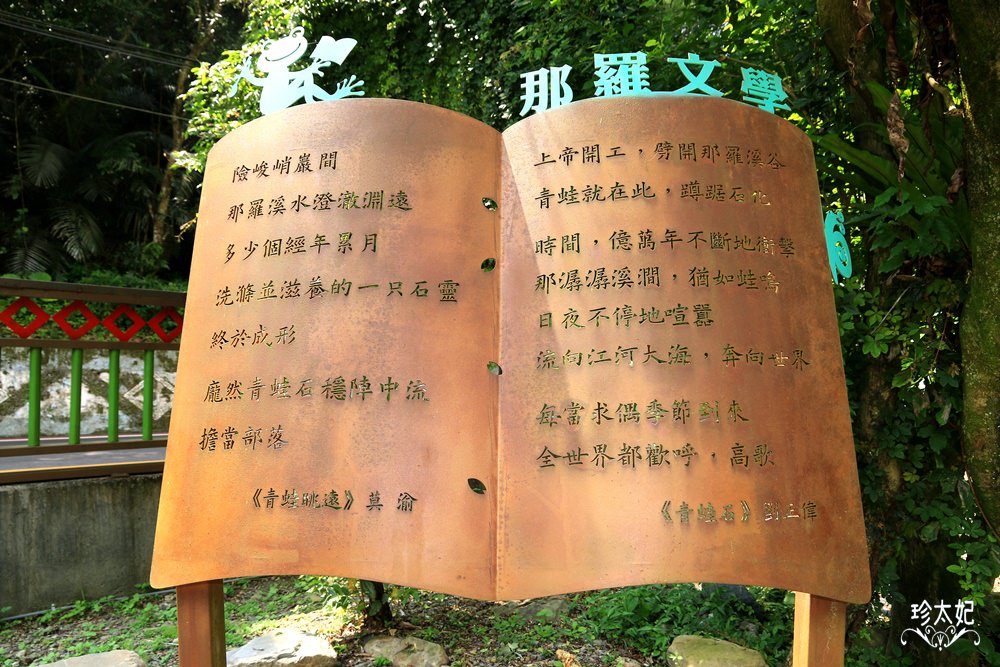 那羅文學
險峻峭巖間
那羅溪水澄澈淵遠
多少個經年累月
洗滌並滋養的一只石靈
終於成形
龐然青蛙石穩陣中流
擔當部落
《青蛙眺遠》莫渝
上帝開工，劈開那羅溪谷
青蛙就在此，蹲踞石化
時間，億萬年不斷地衝擊
那潺潺溪澗，猶如蛙鳴
日夜不停地喧囂
流向江河大海，奔向世界
每當求偶季節到來
全世界都歡呼，高歌
《青蛙石》劉正偉
珍太妃